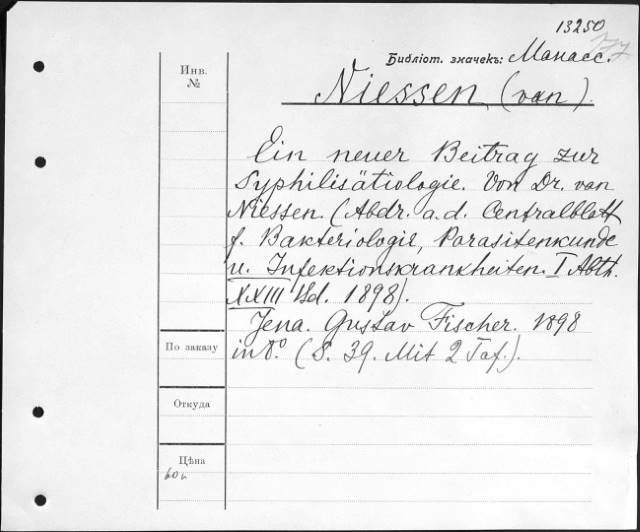 13250
177
Библіот. значекъ: Манасс.
Инв.
№
Niessen (van).
Ein neuer Beitrag zur
Syphilisätiologie. Von Dr. van
Niessen. (Abdr. a. d. Centralblatt
f. Bakteriologie, Parasitenkunde
u. Infektionskrankheiten. I Abth.
XXIII Bd. 1898).
Jena. Gustav Fischer. 1898
in 8.° (S. 39. Mit 2 Taf.).
По заказу
Откуда
Цѣна
60 к